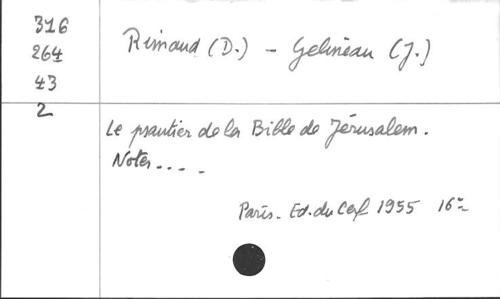 316
264
43
2
Rimaud (D.) - Gelineau (J.)
Le psautier de la Bible de Jérusalem.
Notes....
Paris. Ed. du Cerf 1955 16°